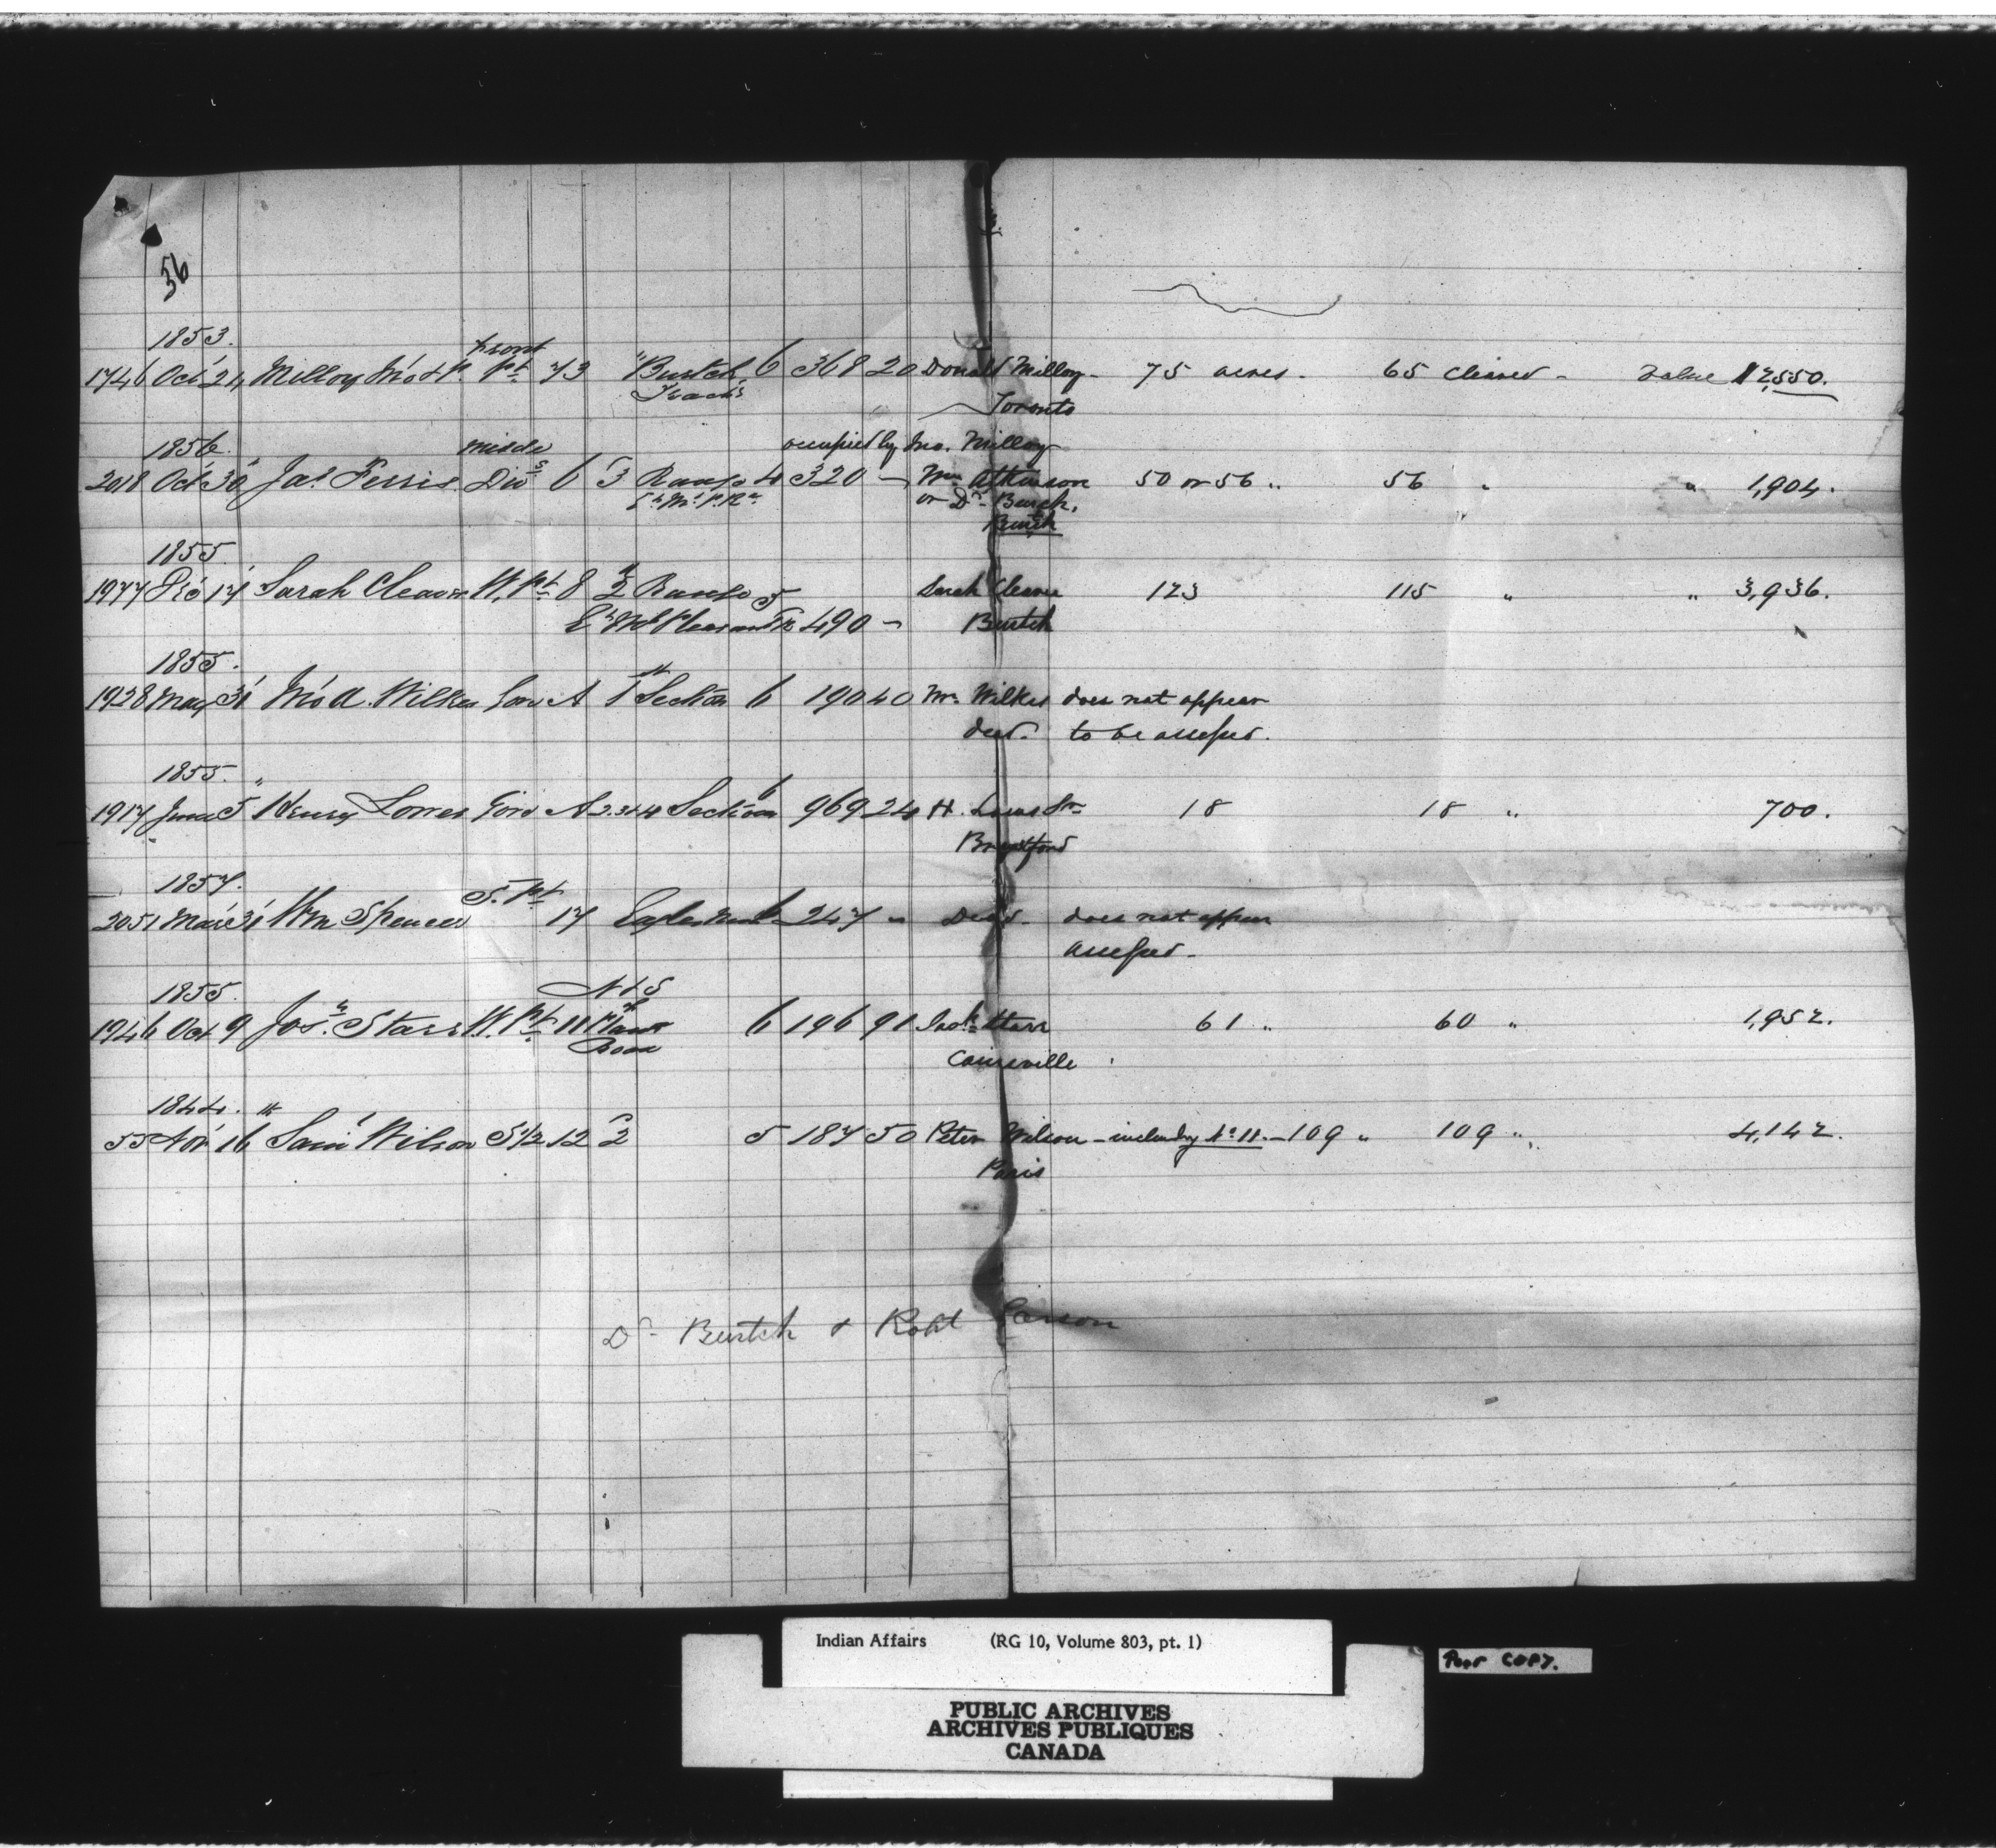 56
1853.
front
1746 Oct 21, Milloy Jno & P. pt 73 " Burtch 6 368 20 Donald Milloy - 75 acres - 65 cleared - value $2,550.
Tract Toronto
1856 middle occupied by Jno. Milloy
2018 Oct 30 Jas Ferris Div 6 3 Range 4 320 - Wm Atkinson 50 or 56 " 56 " " 1,904.
E Mt P. Rd or Dr Burtch,
Burtch
1855
1977 Dec 17 Sarah Cleaver W. pt 8 2 Range 5 Sarah Cleaver 123 115 " " 3,936.
E Mt Pleasant Rd 490 - Burtch
1855.
1928 May 31 Jno A. Wilkes Gore A 1 Section 6 190 40 Mr. Wilkes does not appear
decd. to be assessed.
1855. "
1917 June 5 Henry Lorres Gore A 2.3&4 Section 6 969 24 H. Sr Brantford 18 18 " 700.
1857.
S. pt
2051 Mar 31 Wm Spencer 17 Eagles Nest 6 247 - Decd - does not appear
assessed -
1855. N & S
1946 Oct 9 Jos. Starr W. Pt 11 of 6 196 91 Starr 61 " 60 " 1,952.
Road Cainsville
1844. "
55 Nov 16 Saml Wilson S 1/2 12 2 5 187 50 Peter Wilson - including No 11. - 109 " 109 " 4,142.
Paris
Dr Burtch & Robt Carson
Indian Affairs (RG 10, Volume 803, pt. 1)
Poor COPY.
PUBLIC ARCHIVES
ARCHIVES PUBLIQUES
CANADA